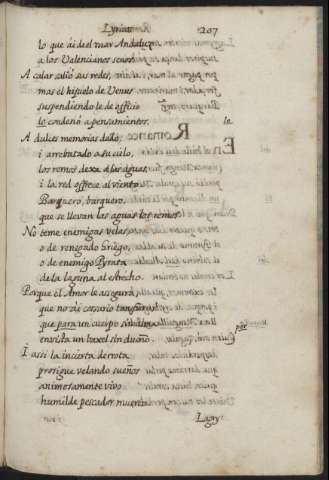 Lyricas 207
lo que ai de el mar Andaluz
a los Valencianos senos
A calar salió sus redes,
mas el hijuelo de Venus
suspendiendole de officio
lo condenó a pensamientos.
A dulces memorias dado,
i arrebatado a su cielo,
los remos dexa a las aguas,
i la red offrece al viento.
Barquero, barquero,
que se llevan las aguas los remos.
No teme enemigas velas,
o de renegado Griego,
o de enemigo Pyrata
de la laguna al Estrecho.
Porque el Amor le assegura,
que no ai cossario tan
que para un cuerpo sin alma
envista un baxel sin dueño.
I assi la incierta derrota
prosigue velando sueños
animosamente vivo
humilde pescador muerto
Lagry-